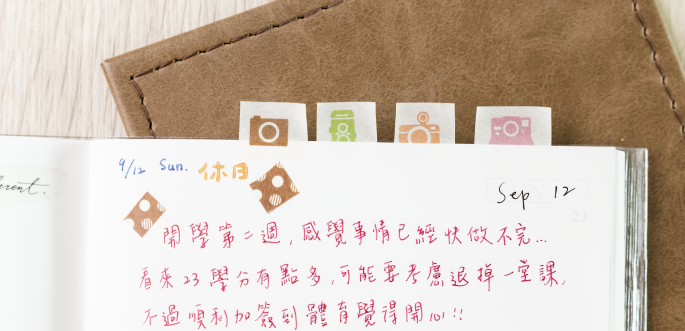 erent.
9/12 Sun. 休日
Sep 12
23
開學第二週,感覺事情已經快做不完...
看來23學分有點多,可能要考慮退掉一堂課,
不過順利加簽到體育覺得開心!!